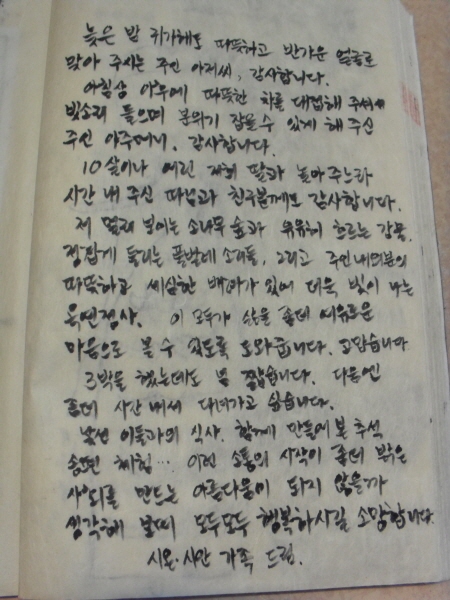 늦은 밤 귀가해도 따뜻하고 반가운 얼굴로
맞아 주시는 주인 아저씨, 감사합니다.
아침상 아우에 따뜻한 차를 대접해 주셔서
빗소리 들으며 분위기 잡을 수 있게 해 주신
주인 아주머니, 감사합니다.
10살이나 어린 저희 딸과 놀아주느라
시간 내 주신 따님과 친구분께도 감사합니다.
저 멀리 보이는 소나무 숲과 유유히 흐르는 강물,
정겹게 들리는 풀벌레 소리들, 그리고 주인내외분의
따뜻하고 세심한 배려가 있어 더욱 빛이 나는
옥연정사. 이 모두가 삶을 좀더 여유로운
마음으로 볼 수 있도록 도와줍니다. 고맙습니다
3박을 했는데도 넘 짧습니다. 다음엔
좀더 시간 내서 다녀가고 싶습니다.
낯선 이들과의 식사. 함께 만들어 본 추석
송편 체험... 이런 소통의 시작이 좀더 밝은
사회를 만드는 아름다움이 되지 않을까
생각해 보며 모두모두 행복하시길 소망합니다.
시온·시안 가족 드림.